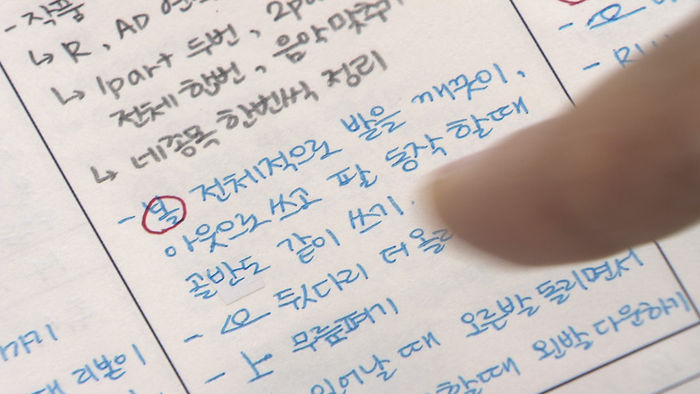 - 작품
↳ R, AD
↳ 1part 두번,
전체 한번, 음악맞추기
↳ 네종목 한번씩 정리
- 볼 전체적으로 발을 깨끗이,
아웃으로 쓰고 팔 동작 할때
골반도 같이 쓰기.
- 뒷다리 더
- 무릎펴기
일어날 때 오른발 돌리면서
할때 왼발 다운하기
리본이